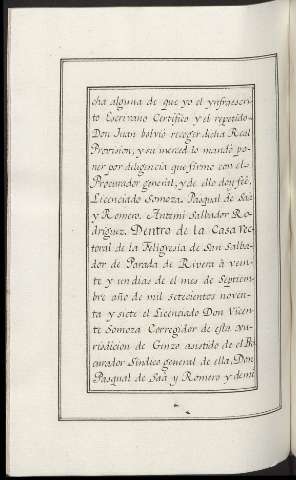 cha alguna de que yo el ynfraescri-
to Escrivano Certifico y el repetido
Don Juan bolvió recoger dicha Real
Provision, y su merced lo mandó po-
ner por diligencia que firmo con el
Procurador general, y de ello doy feé,
Licenciado Somoza. Pasqual de Saá
y Romero. Antemi Salbador Ro-
driguez. Dentro de la Casa Rec-
toral de la Feligresía de San Salba-
dor de Parada de Rivera à vein-
te y un dias de el mes de Septiem-
bre año de mil setecientos noven-
ta y siete el Licenciado Don Vicen-
te Somoza Corregidor de esta Ju-
risdicion de Ginzo asistido de el Pro-
curador Sindico general de ella, Don
Pasqual de Saá y Romero y de mi